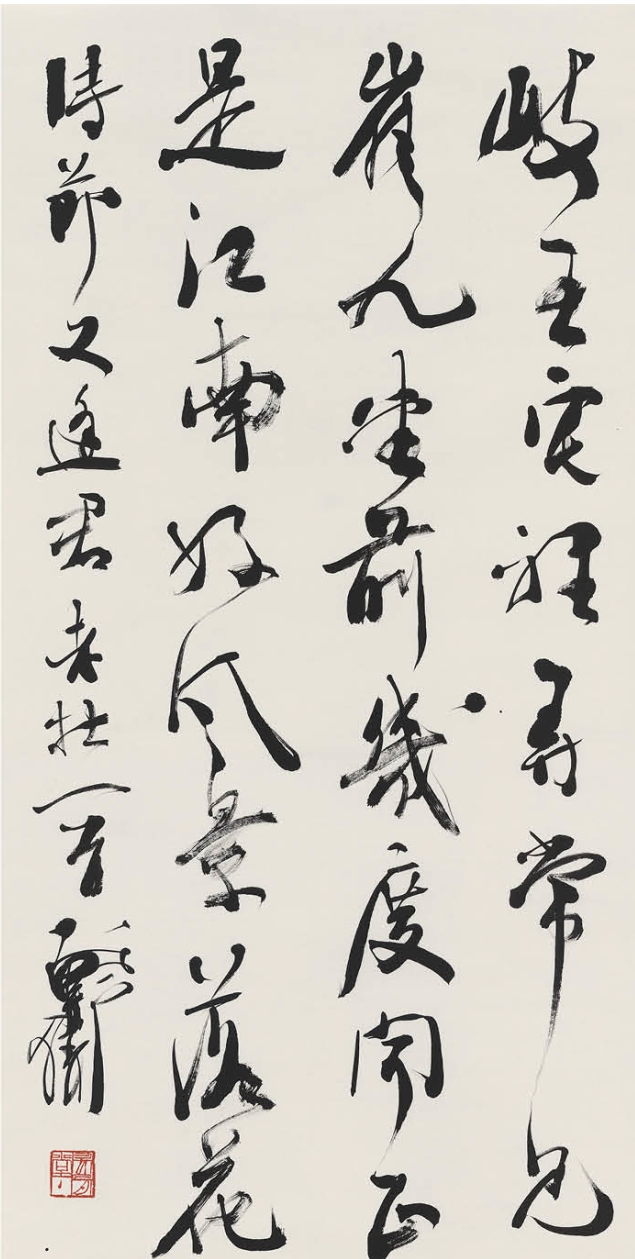 岐王宅裡尋常見
崔九堂前幾度聞正
是江南好風景落花
時節又逢君 老杜一首